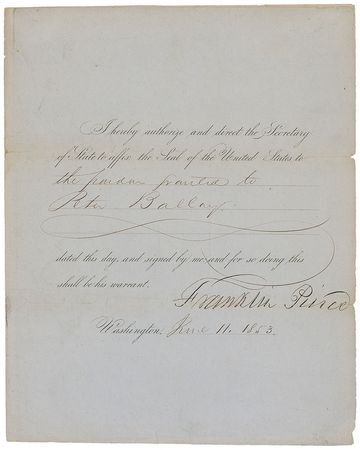 I hereby authorize and direct the Secretary
of State to affix the Seal of the United States to
the pardon granted to
Peter
dated this day, and signed by me and for so doing this
shall be his warrant.
Franklin Pierce
Washington, June 11. 1853.